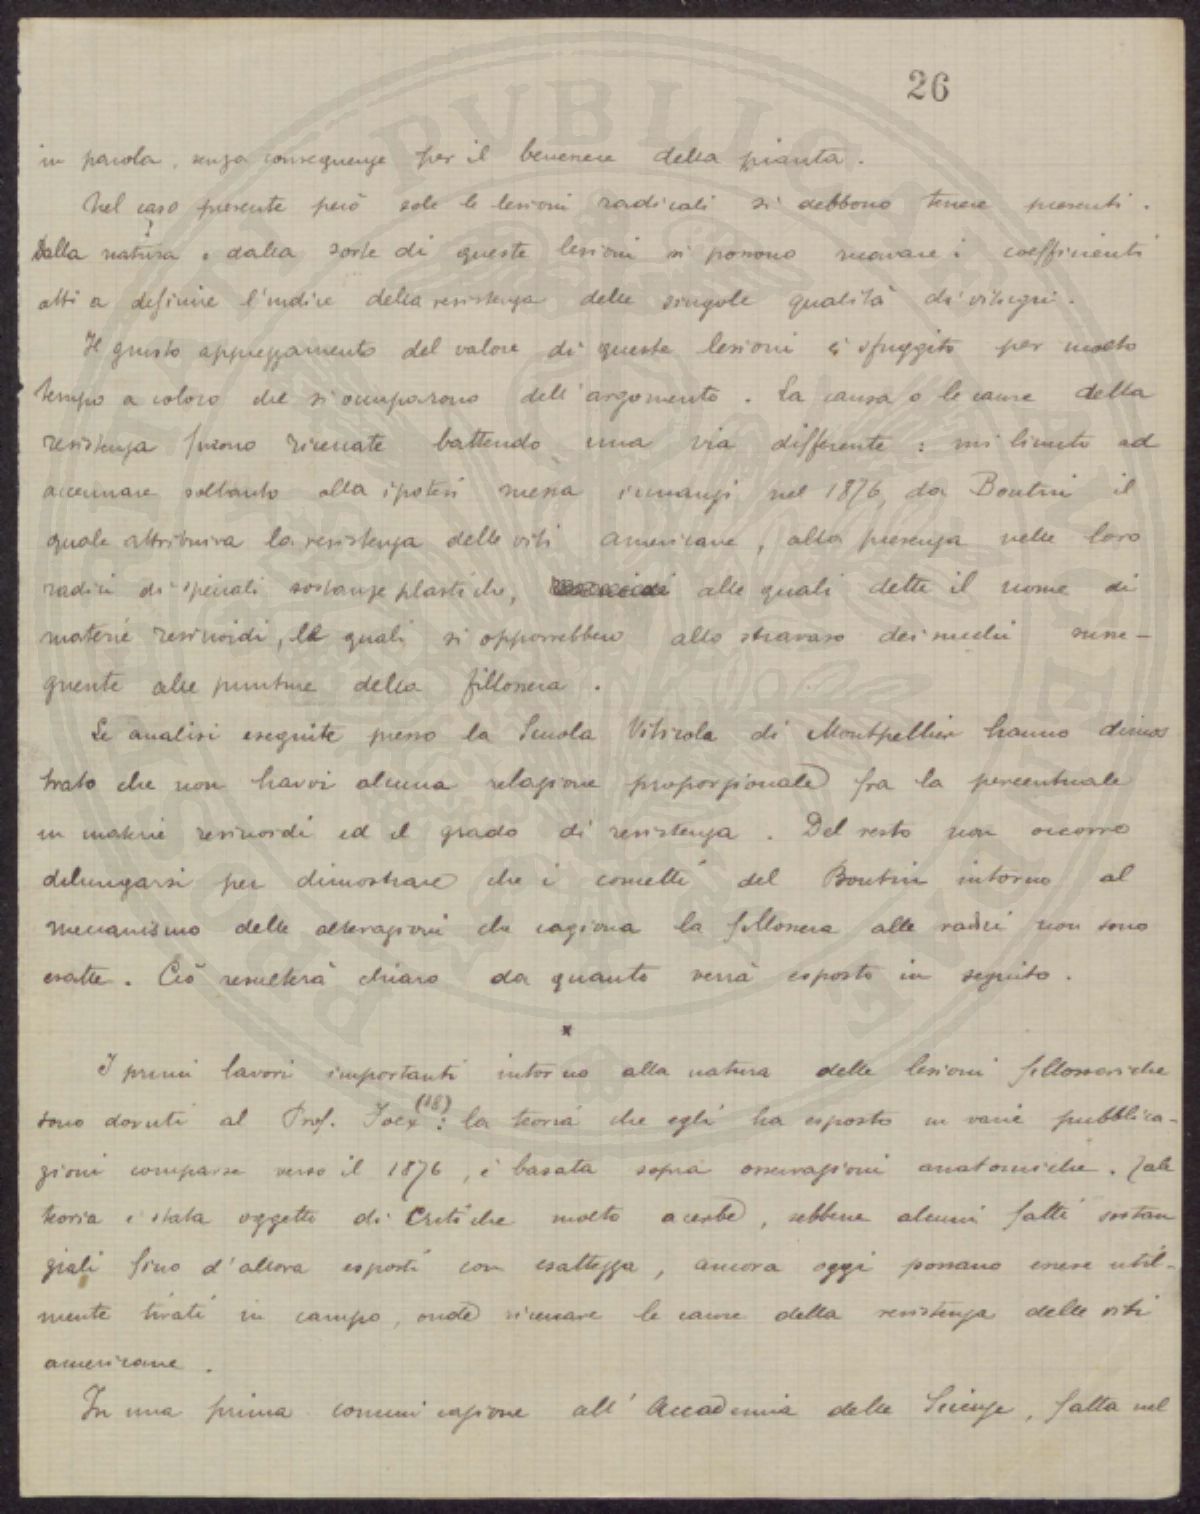 26
in parola, senza conseguenze per il benessere della pianta.
Nel caso presente però sole le lesioni radicali si debbono tenere presenti.
Dalla natura e dalla sorte di queste lesioni si possono ricavare i coefficienti
atti a definire l'indice della resistenza delle singole qualità di vitigni.
Il giusto apprezzamento del valore di queste lesioni è sfuggito per molto
tempo a coloro che si occuparono dell'argomento. La causa o le cause della
resistenza furono ricercate battendo una via differente: mi limito ad
accennare soltanto alla ipotesi messa innanzi nel 1876, da Boutin il
quale attribuiva la resistenza delle viti americane, alla presenza nelle loro
radici di speciali sostanze plastiche, alle quali dette il nome di
materie resinoidi, le quali si opporrebbero allo stravaso dei succhi susse-
guente alle punture della fillossera.
Le analisi eseguite presso la Scuola Viticola di Montpellier hanno dimos
trato che non havvi alcuna relazione proporzionale fra la percentuale
in materie resinoidi ed il grado di resistenza. Del resto non occorre
dilungarsi per dimostrare che i concetti del Boutin intorno al
meccanismo delle alterazioni che cagiona la fillossera alle radici non sono
esatte. Ciò resulterà chiaro da quanto verrà esposto in seguito.
x
I primi lavori importanti intorno alla natura delle lesioni fillosseriche
sono dovuti al Prof. Foëx (18): la teoria che egli ha esposto in varie pubblica-
zioni comparse verso il 1876, è basata sopra osservazioni anatomiche. Tale
teoria è stata oggetto di critiche molto acerbe, sebbene alcuni fatti sostan
ziali fino d'allora esposti con esattezza, ancora oggi possano essere util-
mente tirati in campo, onde ricercare le cause della resistenza delle viti
americane.
In una prima comunicazione all'Accademia delle Scienze, fatta nel